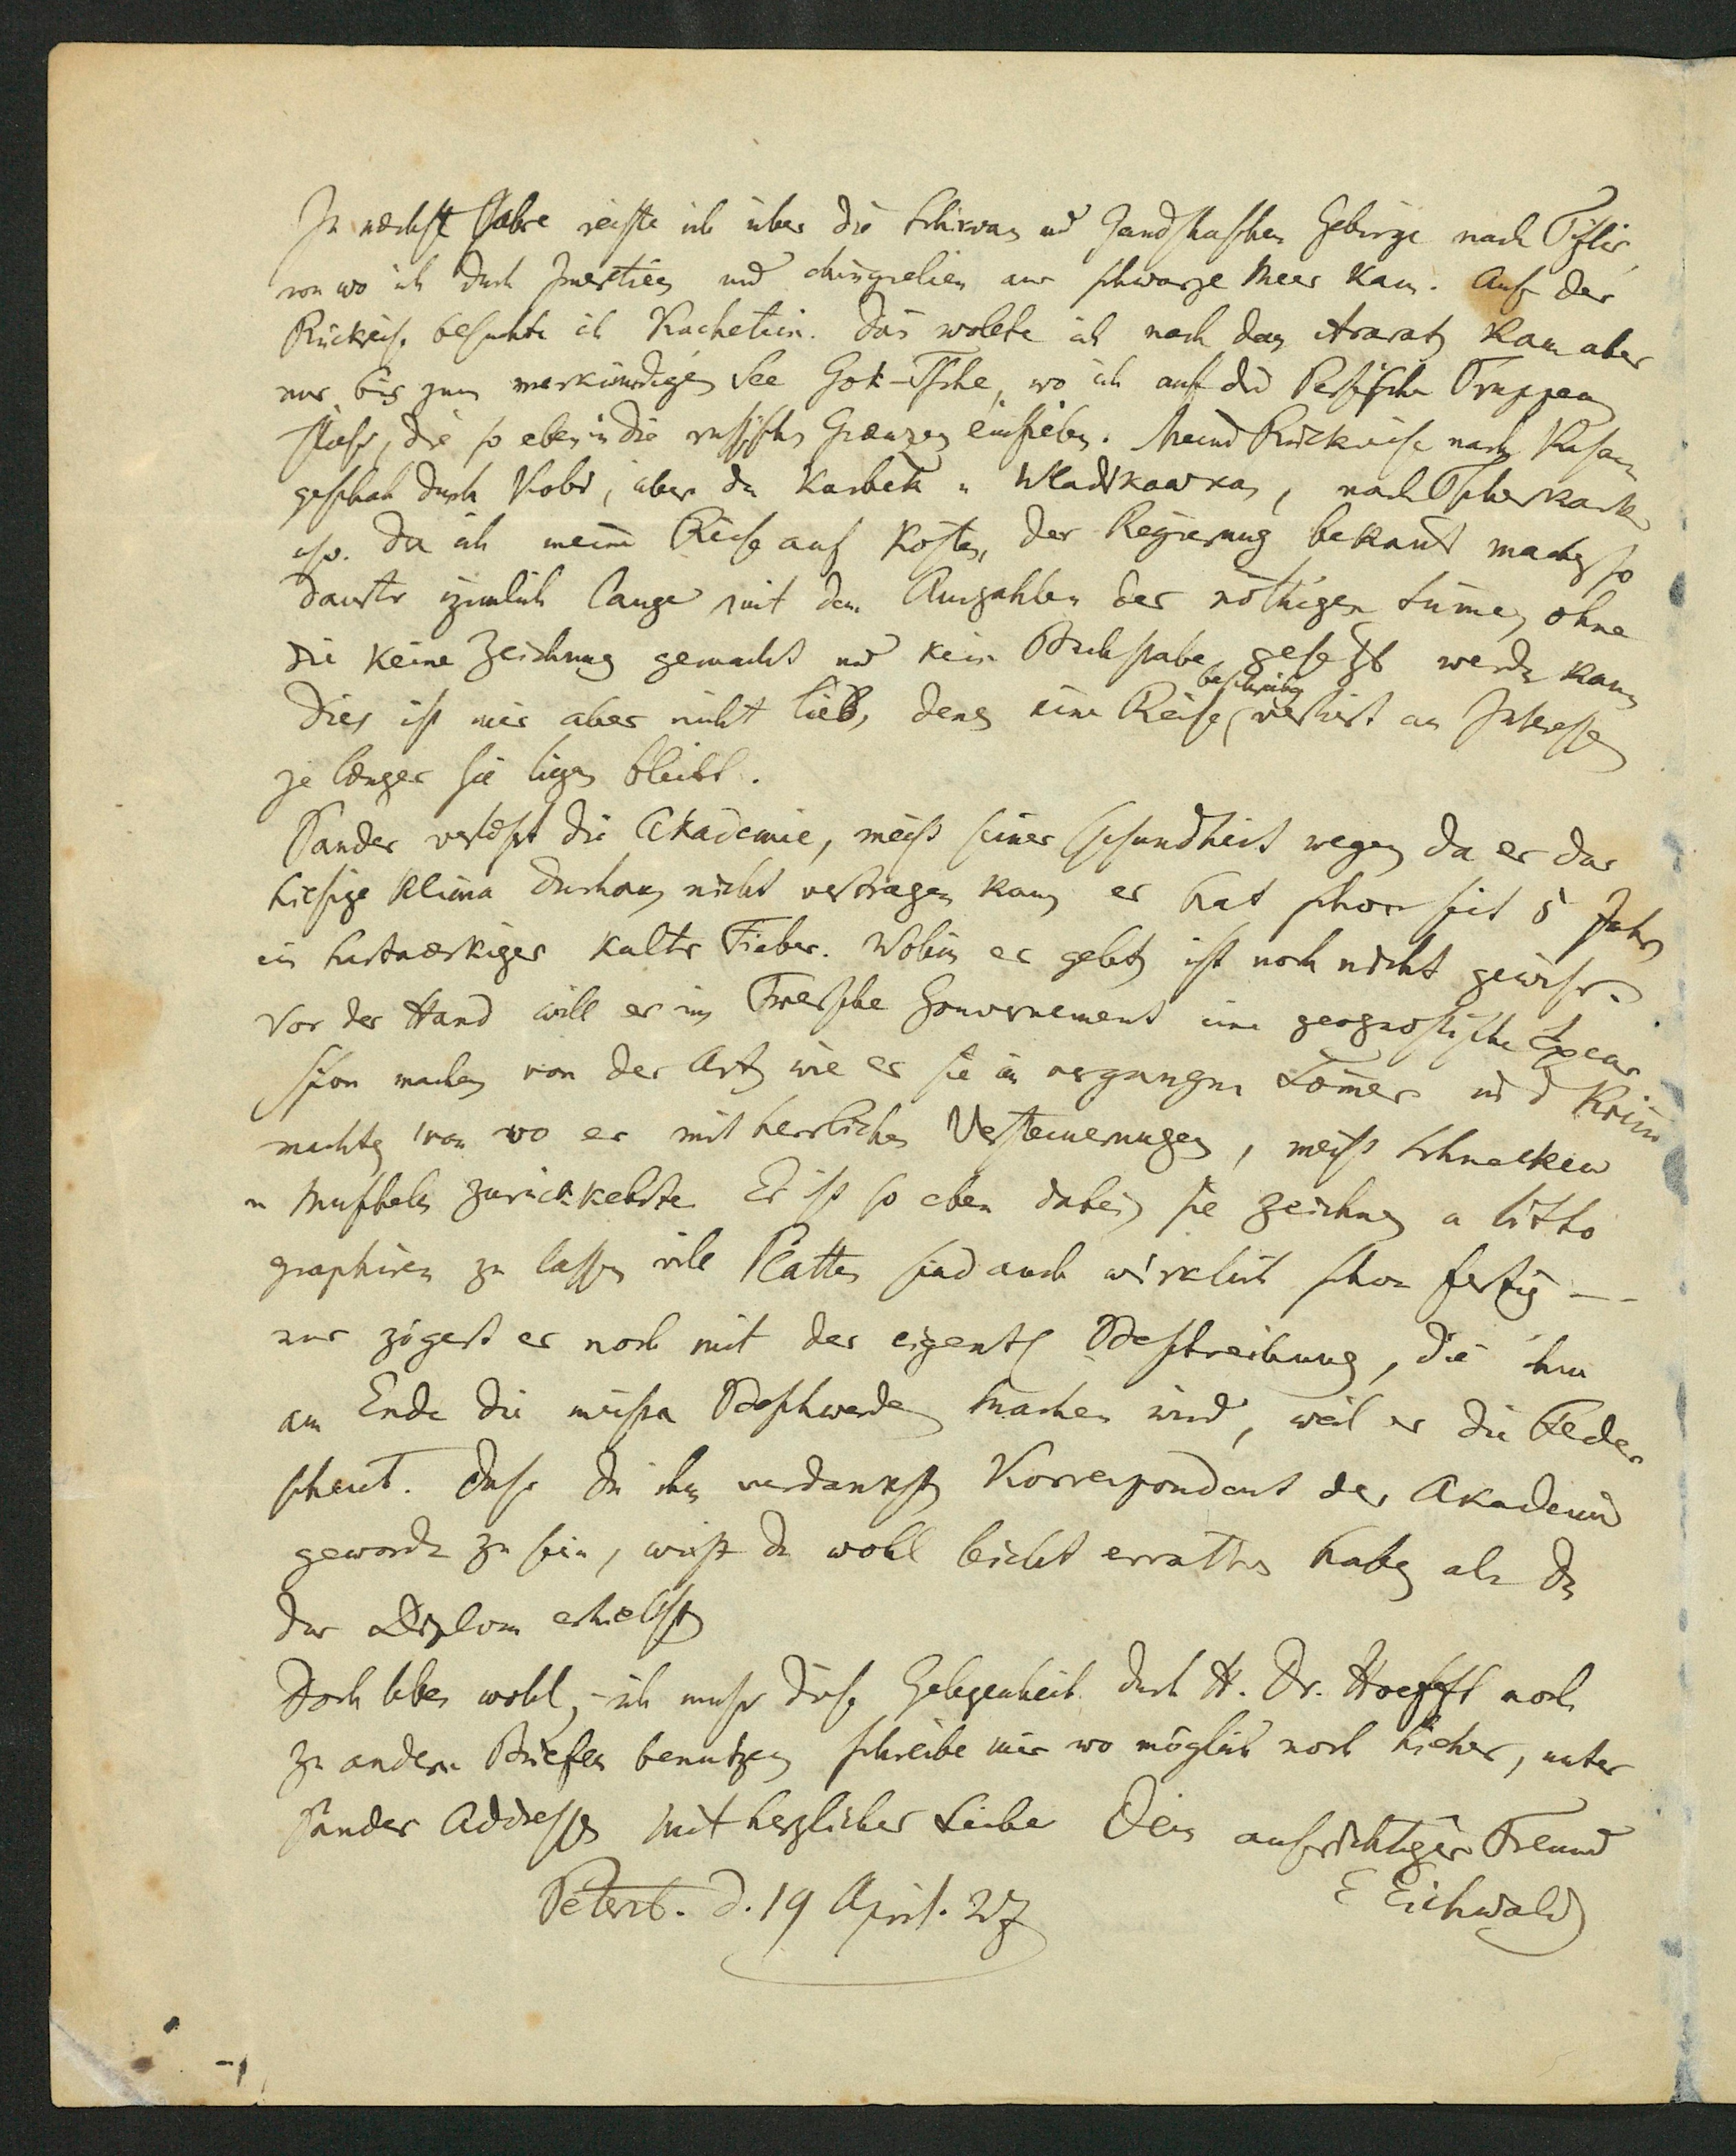 Im nechste Jahre reiste ich über die Schirvan und Gandshaschen Gebirge nach Tiflis,
von wo ich durch Imeretien und Mingrelien ans schwarze Meer kam. Auf der
Rückreise besuchte ich Kachetien. Dan wolte ich nach dem Ararat, kam aber
nur bis zum merkwürdigen See Gok-Tsche, wo ich auf die Persische Truppen
stiefs, die so eben in die russische Grænzen einfielen. Meine Rückreise nach Kasan
geschah durch Kobi, über den Kasbek u Wladikawkas, nach Tscherkask
usw. Da ich meine Reise auf Kosten der Regierung bekant mache, so
dauerte ziemlich lange mit dem Auszahlen der nöthigen Summe, ohne
die keine Zeichnung gemacht und kein Buchstabe gesetzt werden kann
Dies ist mir aber nicht lieb, denn eine Reisebeschreibung verliert an Interesse
je længer sie liegen bleibt.
Pander verlæsst die Akademie, meist seiner Gesundheit wegen, da er das
hiesige Klima durchaus nicht vertragen kann, er hat schon seit 5 Jahren
ein hartnæckiges kaltes Fieber. Wohin er geht, ist noch nicht gewiss.
Vor der Hand will er ins Twersche Gouvernement eine geognostische Excur
sion machen von der Art, wie er sie im vergangnen Sommer in d Krimm
machte, von wo er mit herrlichen Versteinerungen, meist Schnecken
u Muscheln zurückkehrte Er ist so eben dabei, sie zeichnen u litho
graphiren zu lassen, viele Platten sind auch wirklich schon fertig --
nur zögert er noch mit der eigentl Beschreibung, die ihm
am Ende die meisten Beschwerden machen wird, weil er die Feder
scheut. Dass du ihm verdankst, Korrespondent der Akademie
geworden zu sein, wirst du wohl leicht errathen haben als du
das Diplom erhieltst
Doch lebe wohl, – ich muss diese Gelegenheit durch H. Dr. Hoefft noch
zu andern Briefen benutzen, schreibe mir wo möglich noch hieher, unter
Pander Addresse, mit herzlicher Liebe Dein aufrichtiger Freund
Petersb. d. 19 April. 27 E Eichwald